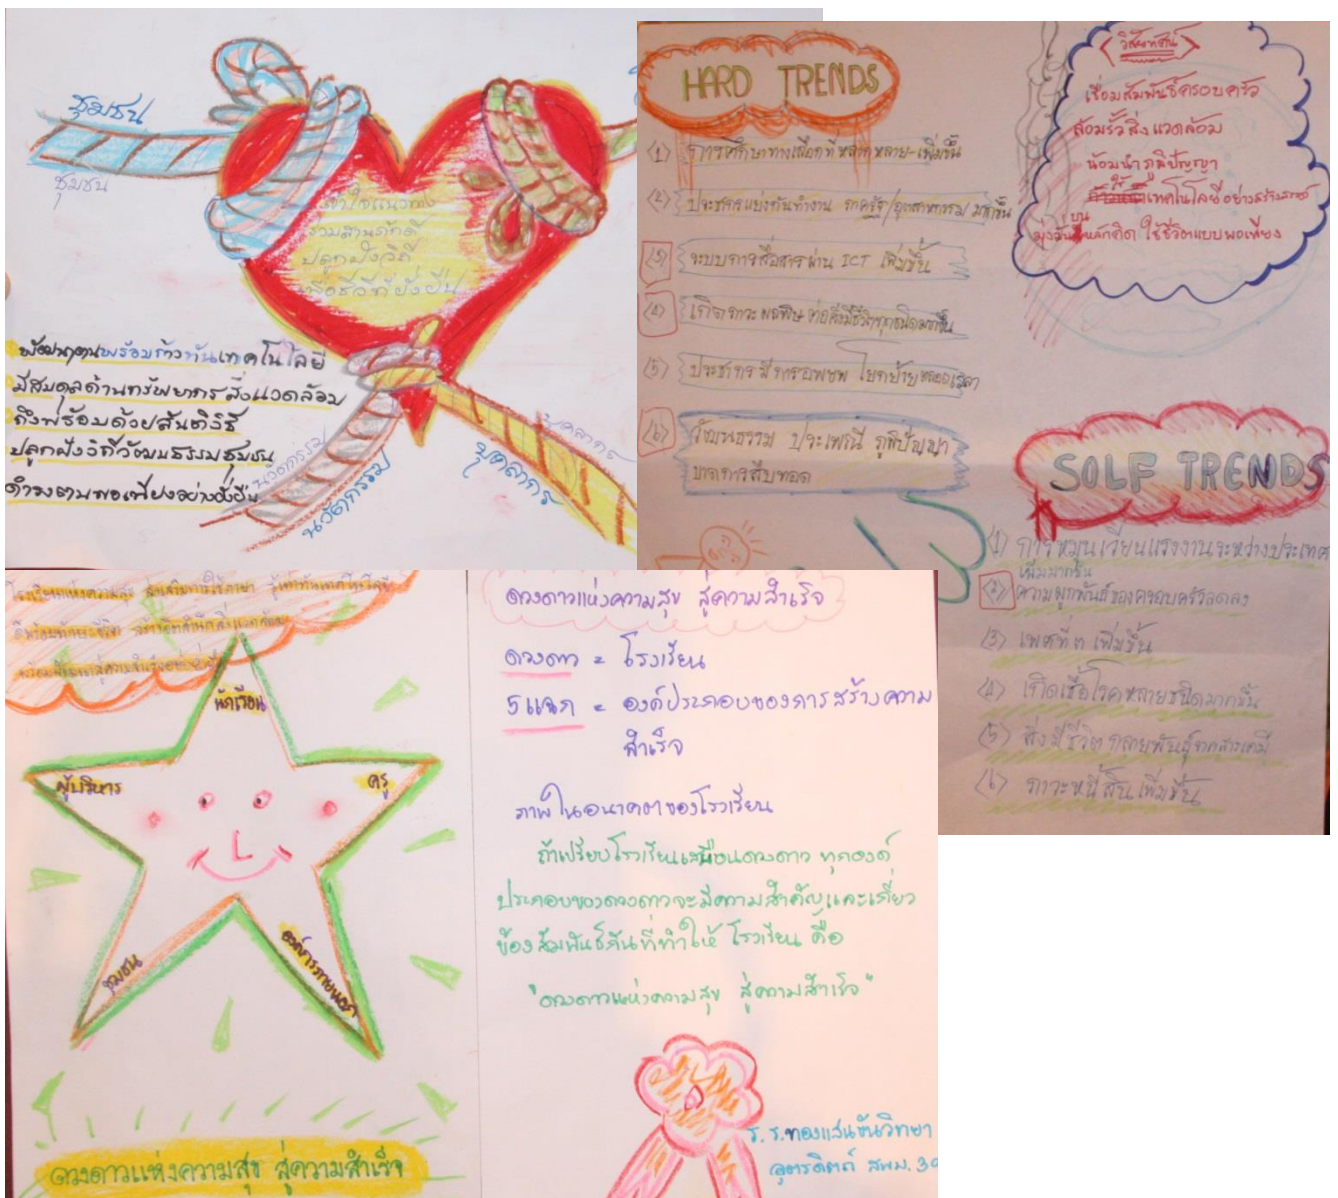 ชุมชน
ชุมชน
เข้าใจแนวทาง
รวมสานภักดี
ปลูกฝังวิถี
เพื่อชีวีที่ยั่งยืน
พร้อมก้าวทันเทคโนโลยี
มีสมดุลด้านทรัพยากรสิ่งแวดล้อม
ถึงพร้อมด้วยสันติวิธี
ปลูกฝังวิถีวัฒนธรรมชุมชน
ดำรงตามพอเพียงอย่างยั่งยืน
นวัตกรรม
นวัตกรรม
บุคลากร
บุคลากร
HARD TRENDS
(1) การศึกษาทางเลือกที่หลากหลาย-เพิ่มขึ้น
(2) ประชากรแข่งขันทำงาน ภาครัฐ/อุตสาหกรรม มากขึ้น
(3) ระบบการสื่อสารผ่าน ICT เพิ่มขึ้น
(4) เกิดภาวะมลพิษต่อสิ่งมีชีวิตทุกชนิดมากขึ้น
(5) ประชากรมีการอพยพ โยกย้ายตลอดเวลา
(6) วัฒนธรรม ประเพณี ภูมิปัญญา
ขาดการสืบทอด
วิสัยทัศน์
เชื่อมสัมพันธ์ครอบครัว
ล้อมรั้วสิ่งแวดล้อม
น้อมนำภูมิปัญญา
ใช้เทคโนโลยีอย่างสร้างสรรค์
มุ่งมั่นบนหลักคิด ใช้ชีวิตแบบพอเพียง
SOLF TRENDS
(1) การหมุนเวียนแรงงานระหว่างประเทศ
เพิ่มมากขึ้น
(2) ความผูกพันธ์ของครอบครัวลดลง
(3) เพศที่ 3 เพิ่มขึ้น
(4) เกิดเชื้อโรคหลายชนิดมากขึ้น
(5) สิ่งมีชีวิตกลายพันธุ์จากสารเคมี
(6) ภาวะหนี้สินเพิ่มขึ้น
โรงเรียนแห่งความสุข ส่งเสริมการใช้ภาษา
นักเรียน
ผู้บริหาร
ครู
ชุมชน
องค์กรภายนอก
ดวงดาวแห่งความสุข สู่ความสำเร็จ
ดวงดาวแห่งความสุข สู่ความสำเร็จ
ดวงดาว = โรงเรียน
5 แฉก = องค์ประกอบของการสร้างความ
สำเร็จ
ภาพในอนาคตของโรงเรียน
ถ้าเปรียบโรงเรียนเสมือนดวงดาว ทุกองค์
ประกอบของดวงดาวจะมีความสำคัญและเกี่ยว
ข้องสัมพันธ์กันที่ทำให้ โรงเรียน คือ
"ดวงดาวแห่งความสุข สู่ความสำเร็จ"
ร.ร.ทองแสนขันวิทยา
อุตรดิตถ์ สพม. 39